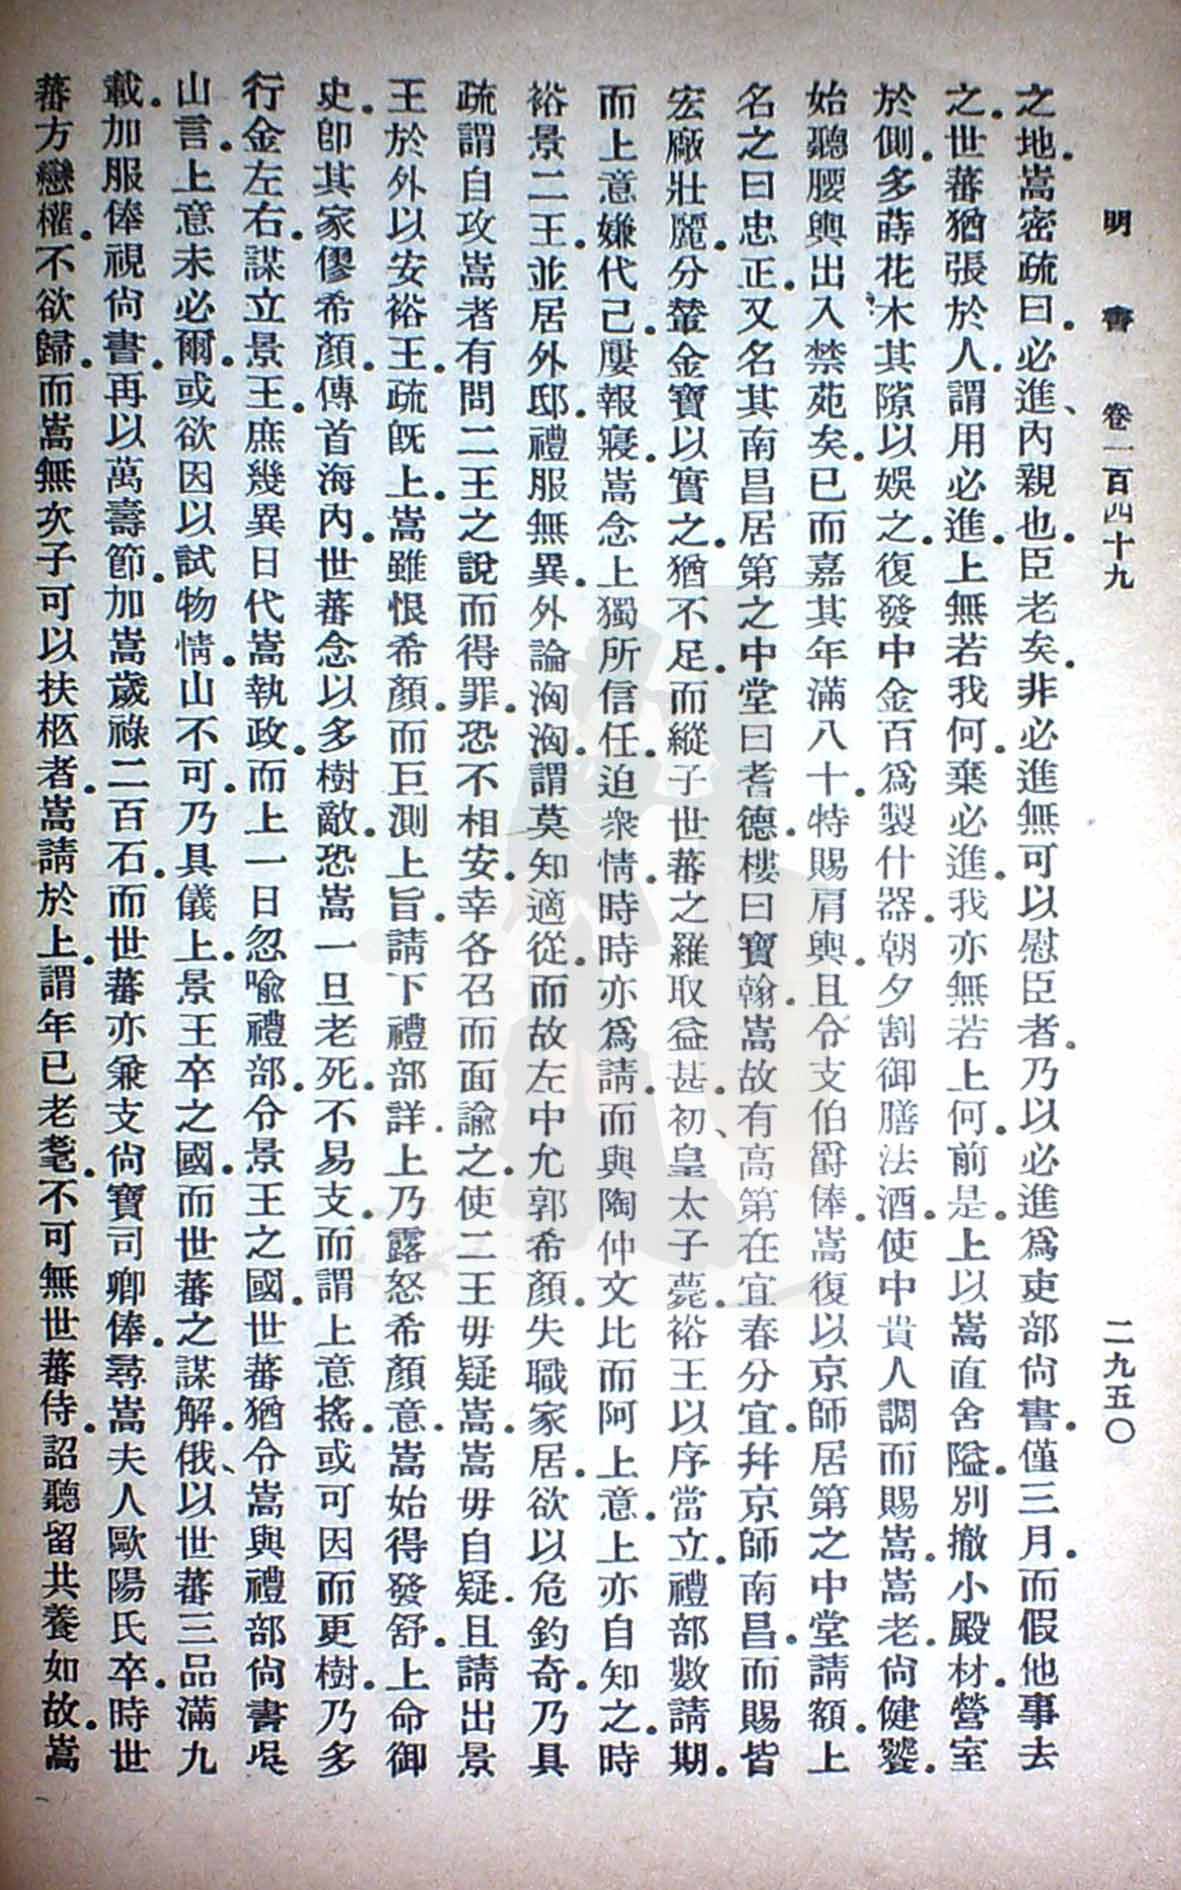 明書 卷一百四十九 二九五〇
之地。嵩密疏曰。必進、內親也。臣老矣。非必進無可以慰臣者。乃以必進爲吏部尙書。僅三月。而假他事去
之。世蕃猶張於人。謂用必進。上無若我何。棄必進。我亦無若上何。前是。上以嵩直舍隘。別撤小殿材。營室
於側。多蒔花木其隙以娛之。復發中金百爲製什器。朝夕割御膳法酒。使中貴人調而賜嵩。嵩老。尙健饕。
始聽腰輿出入禁苑矣。已而嘉其年滿八十。特賜肩輿。且令支伯爵俸。嵩復以京師居第之中堂請額。上
名之曰忠正。又名其南昌居第之中堂曰耆德。樓曰寶翰。嵩故有高第在宜春分宜。幷京師南昌。而賜皆
宏廠壯麗。分輦金寶以實之。猶不足。而縱子世蕃之羅取益甚。初、皇太子薨。裕王以序當立。禮部數請期。
而上意嫌代己。屢報寢。嵩念上獨所信任。迫衆情。時時亦爲請。而與陶仲文比而阿上意。上亦自知之。時
裕景二王。並居外邸。禮服無異。外論洶洶。謂莫知適從。而故左中允郭希顏。失職家居。欲以危釣奇。乃具
疏謂自攻嵩者有問二王之說而得罪。恐不相安。幸各召而面諭之。使二王毋疑嵩。嵩毋自疑。且請出景
王於外以安裕王。疏旣上。嵩雖恨希顏。而叵測上旨。請下禮部詳。上乃露怒希顏意。嵩始得發舒。上命御
史。卽其家僇希顏。傳首海內。世蕃念以多樹敵。恐嵩一旦老死。不易支。而謂上意搖。或可因而更樹。乃多
行金左右。謀立景王。庶幾異日代嵩執政。而上一日忽喩禮部。令景王之國。世蕃猶令嵩與禮部尙書吳
山言。上意未必爾。或欲因以試物情。山不可。乃具儀上。景王卒之國。而世蕃之謀解。俄、以世蕃三品滿九
載。加服俸視尙書。再以萬壽節。加嵩歲祿二百石。而世蕃亦兼支尙寶司卿俸。尋嵩夫人歐陽氏卒。時世
蕃方戀權。不欲歸。而嵩無次子可以扶柩者。嵩請於上。謂年已老耄。不可無世蕃侍。詔聽留共養如故。嵩